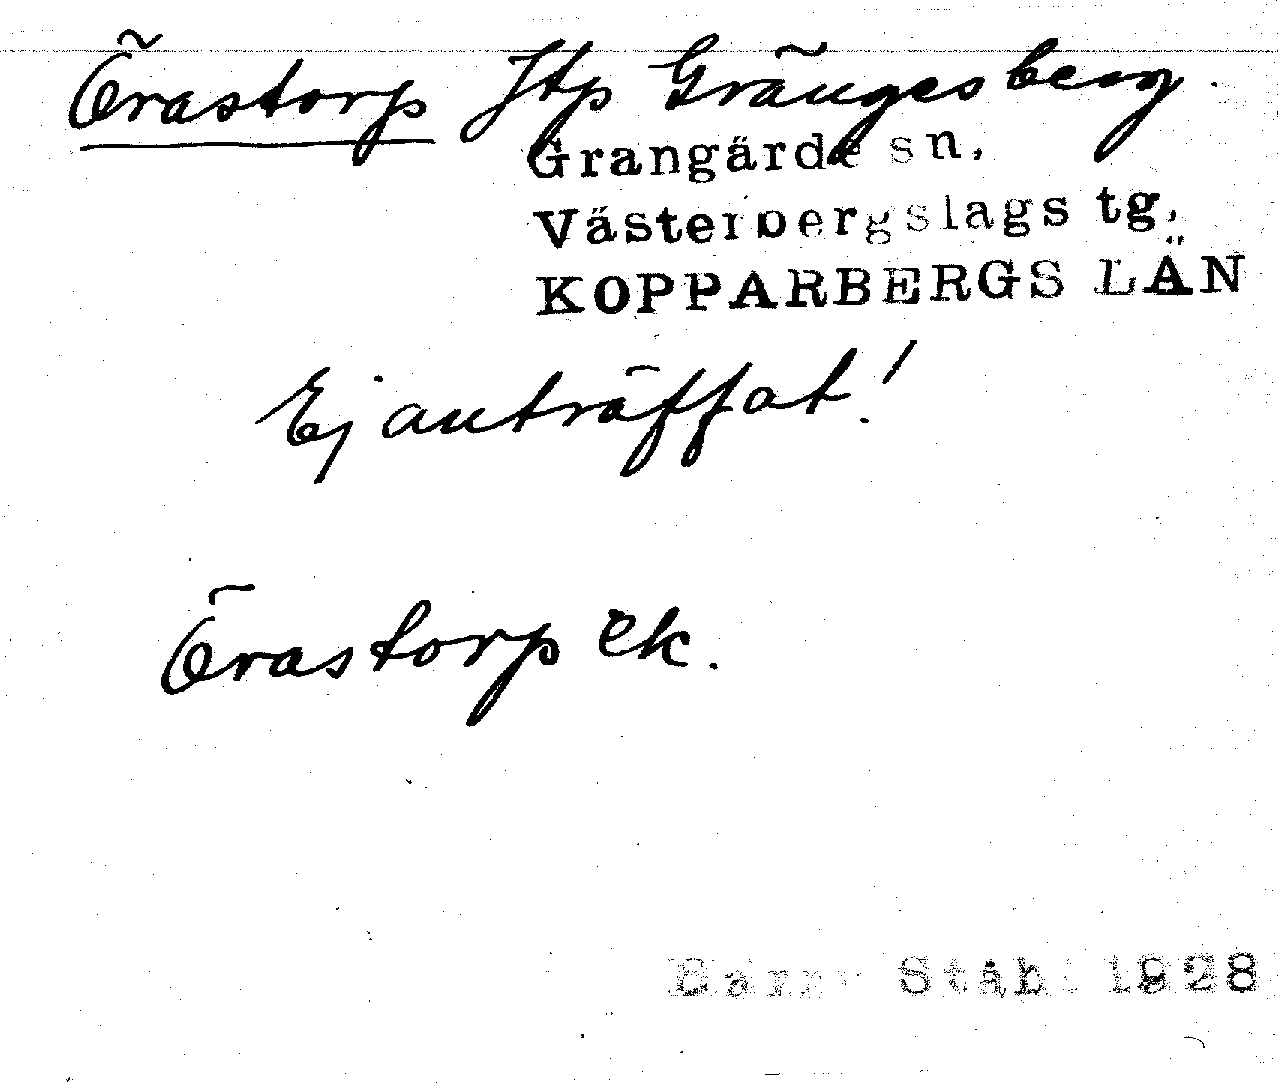 Örastorp Jtp Grängesberg.
Grangärde sn,
Västerbergslags tg,
KOPPARBERGS LÄN
Ej anträffat!
Örastorp ek.
Harry Ståhl 1928